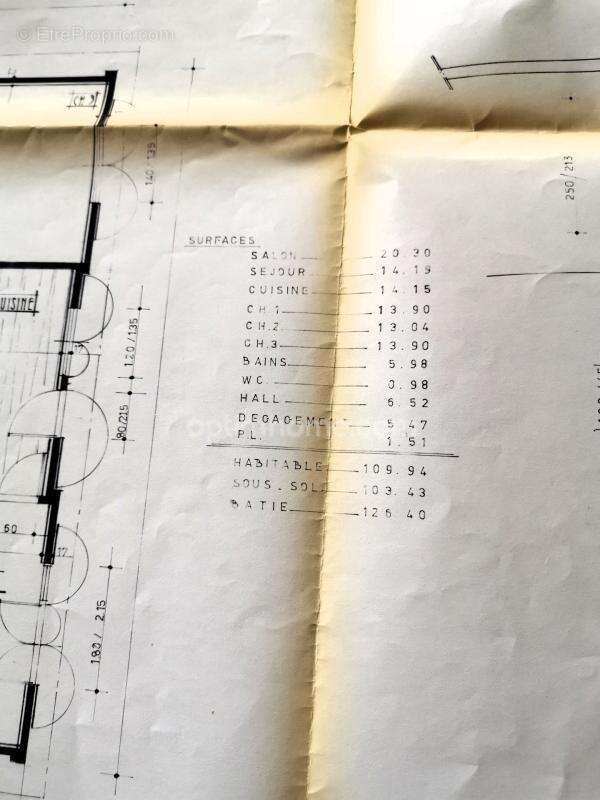 © EtreProprio.com
CH 3
140/135
250/213
SURFACES
SALON 20.30
SEJOUR 14.19
CUISINE 14.15
CH.1 13.90
CH.2 13.04
CH.3 13.90
BAINS 5.98
WC. 0.98
HALL 6.52
DEGAGEME 5.47
P.L. 1.51
HABITABLE 109.94
SOUS-SOL 103.43
BATIE 126.40
UISINE
120/135
80/215
60
17
180/215